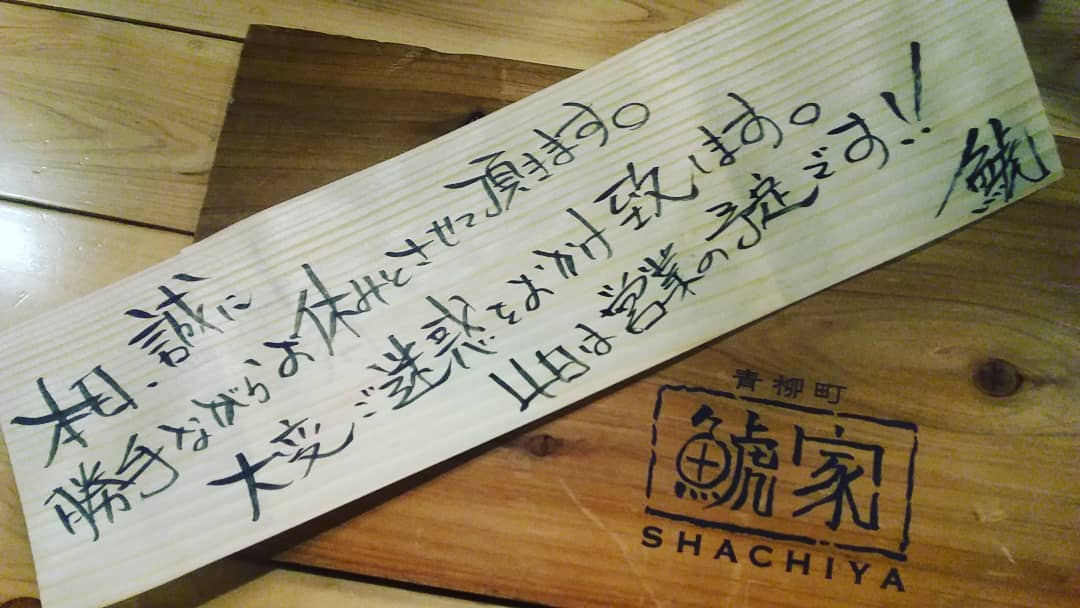 本日、誠に
勝手ながらお休みとさせて頂きます。
大変ご迷惑をおかけ致します。
は営業の予定です!!
鯱
青柳町
鯱家
SHACHIYA